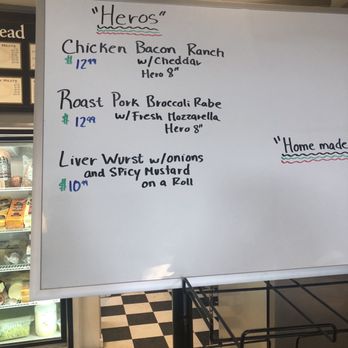 "Heros"
Chicken Bacon Ranch
$12.99 w/Cheddar
Hero 8"
Roast Pork Broccoli Rabe
$12.99 w/Fresh Mozzarella
Hero 8"
Liver Wurst w/onions
and Spicy Mustard
$10.99 on a Roll
"Home made
ead